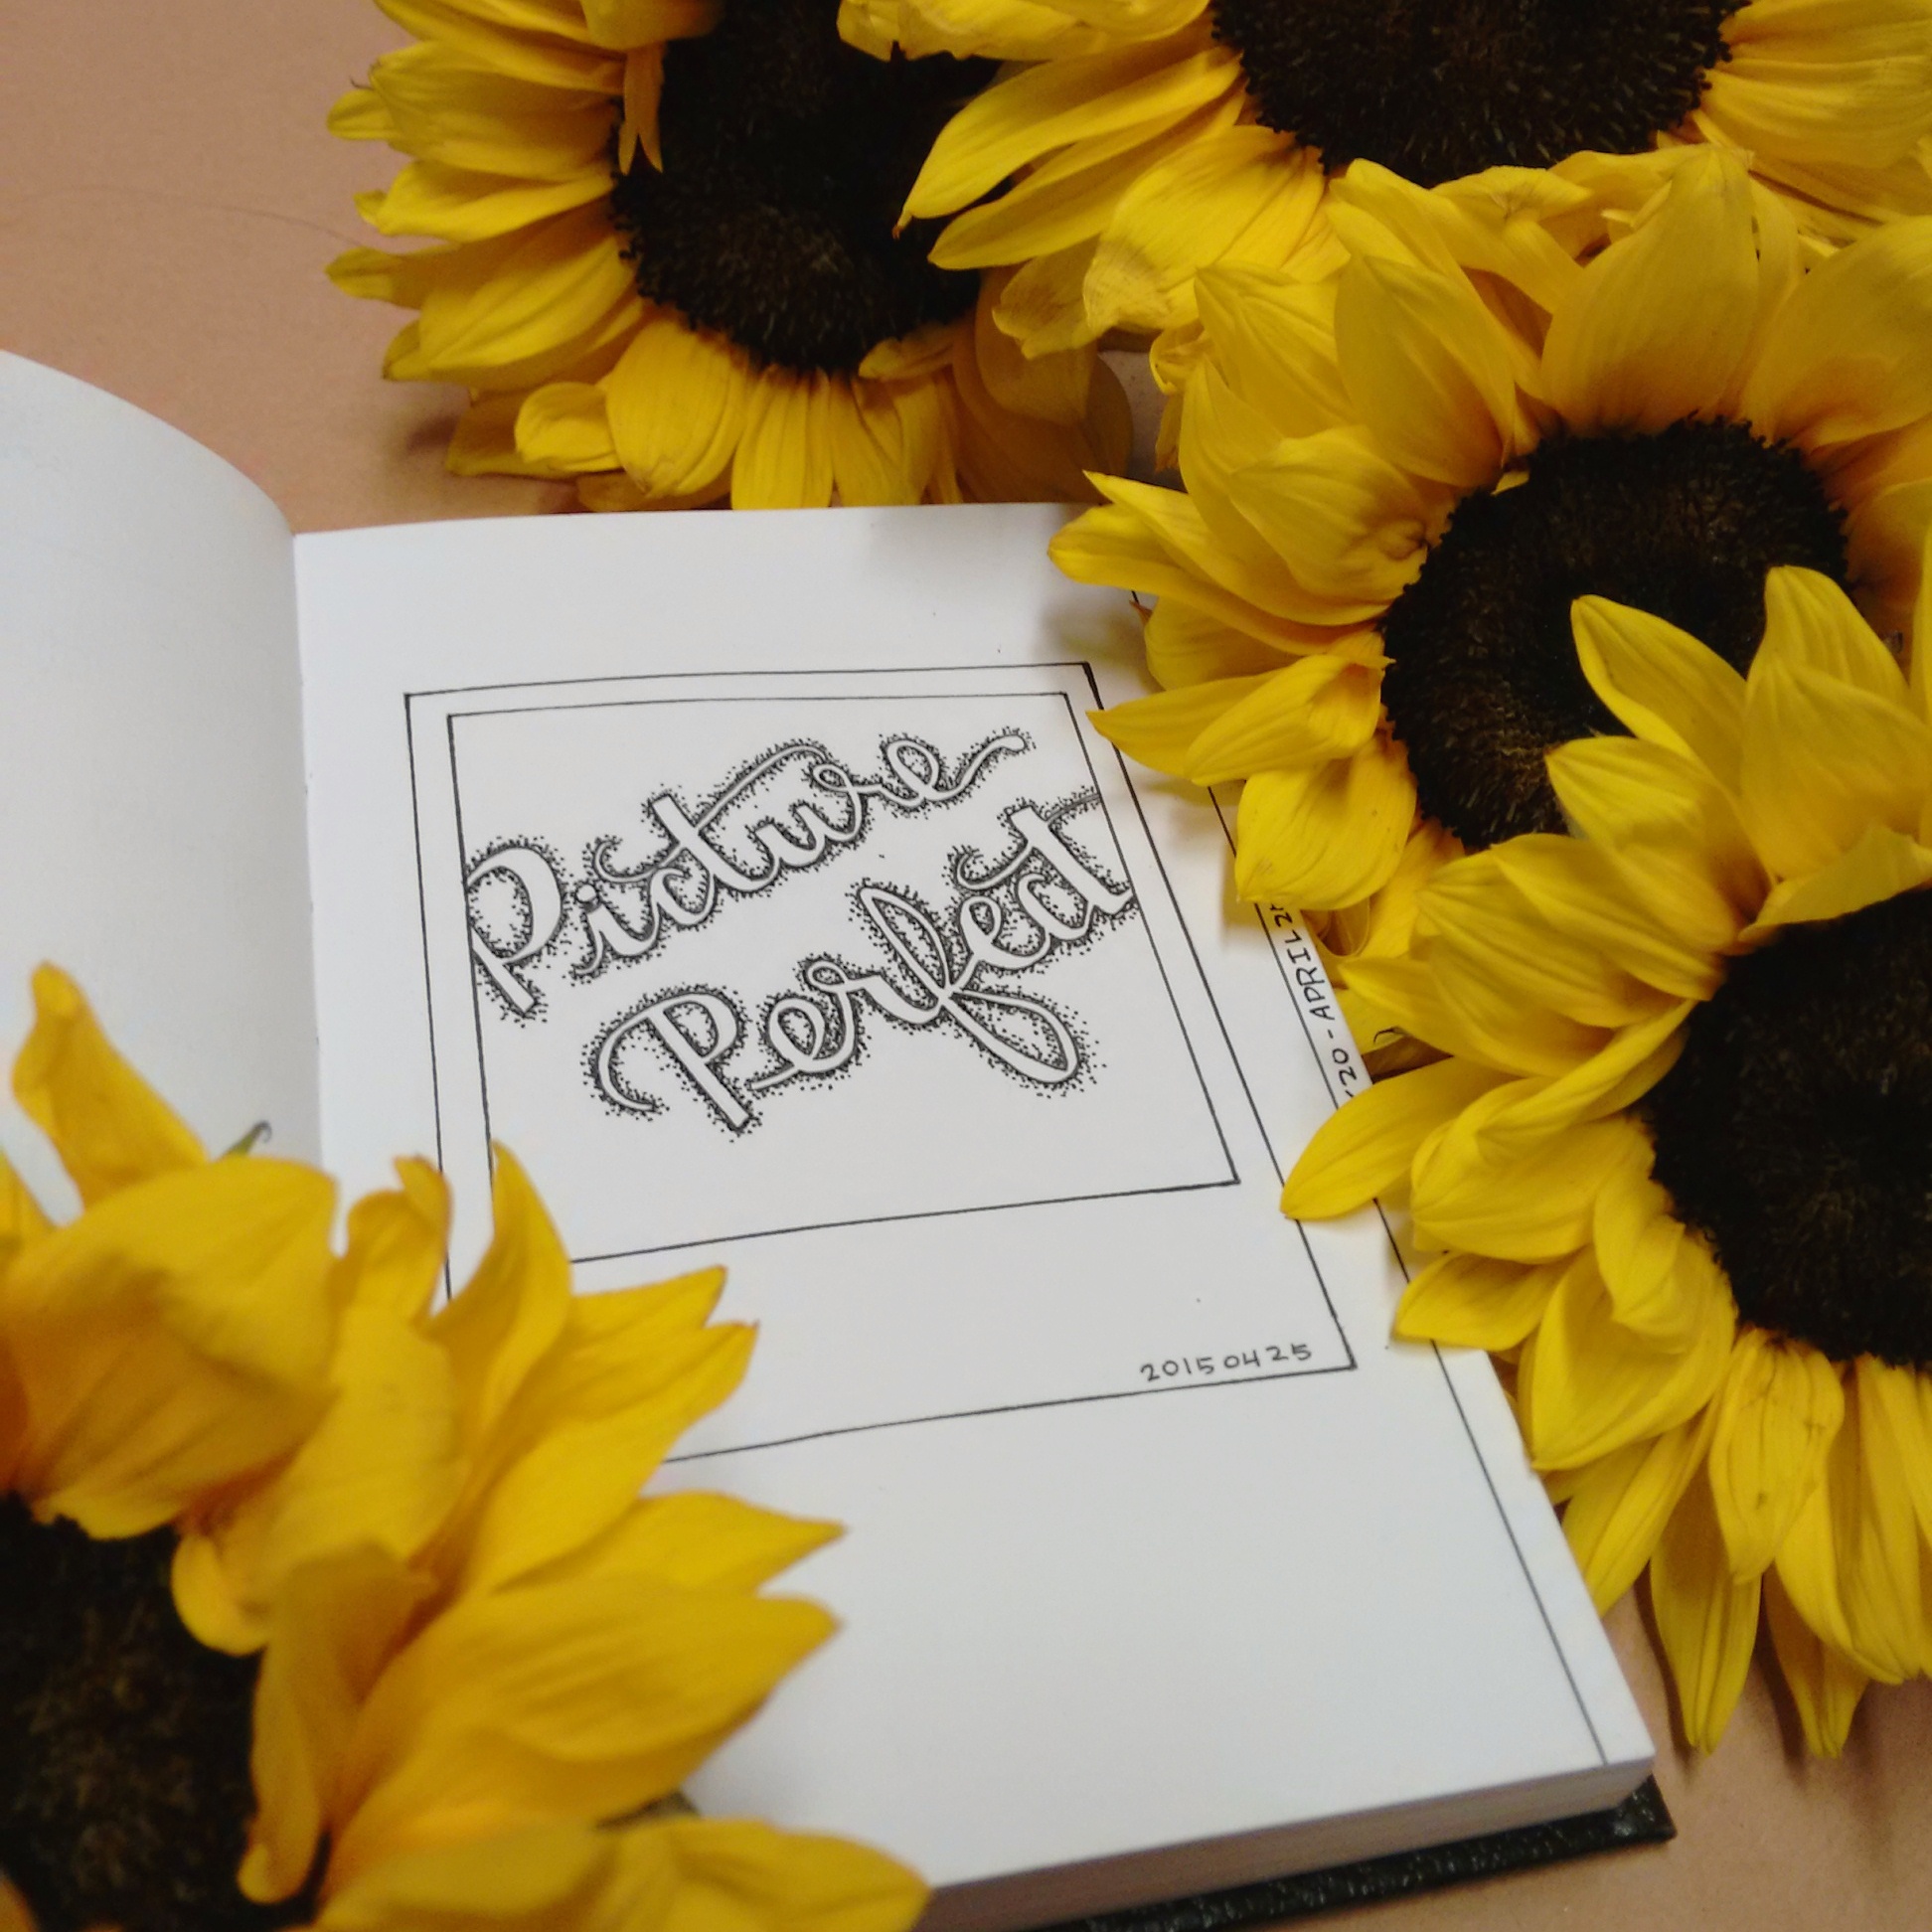 Picture
Perfect
20150425
'20 - APRIL